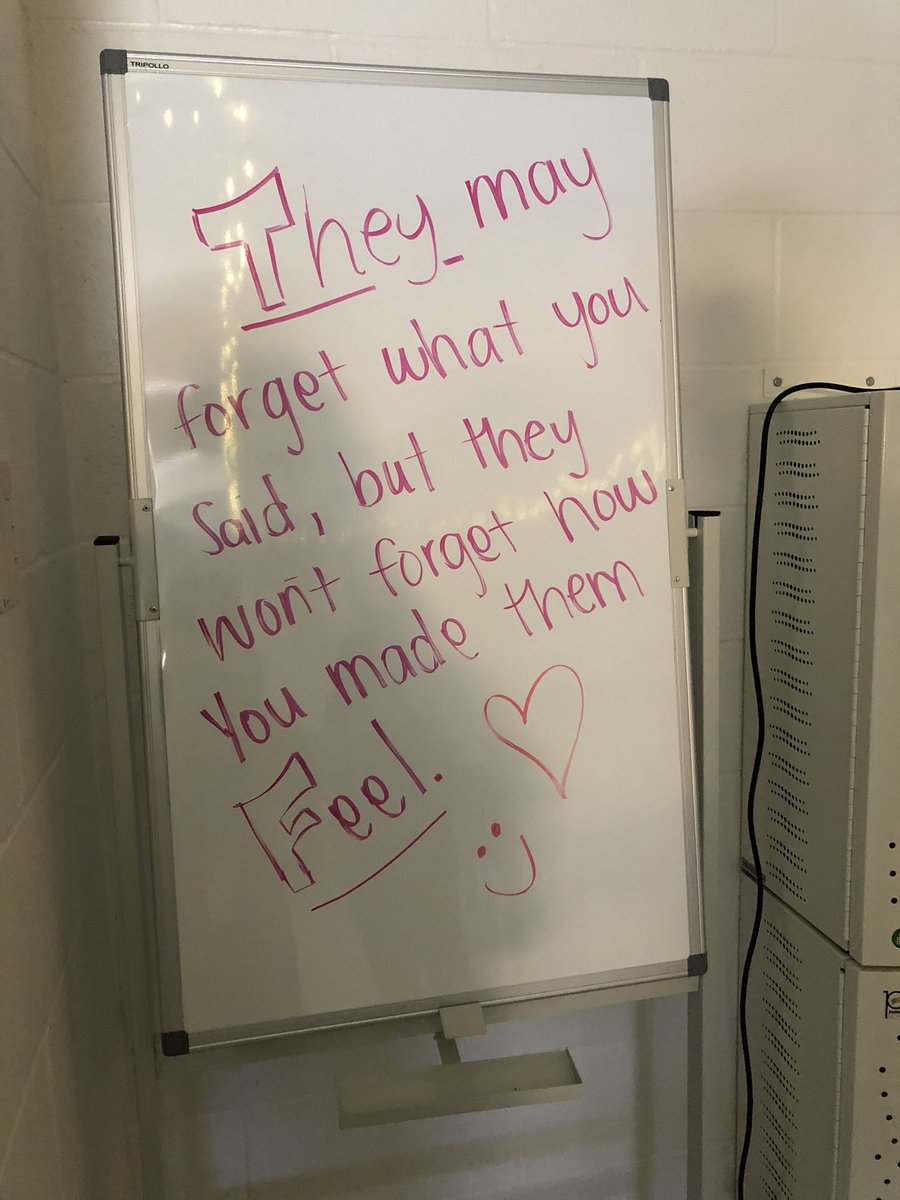 TRIPOLLO
They may
forget what you
Said, but they
won't forget how
You made them
Feel.